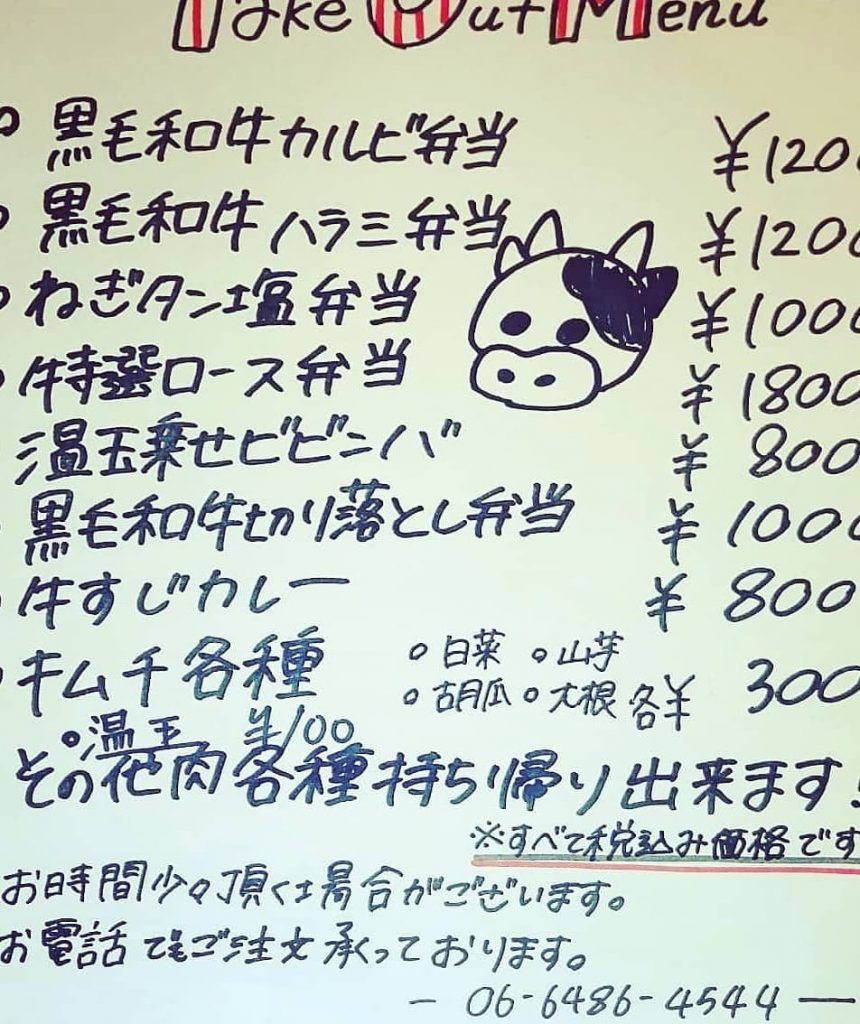 Take Out Menu
黒毛和牛カルビ弁当 ¥1200
黒毛和牛ハラミ弁当 ¥1200
ねぎタン塩弁当 ¥1000
特選ロース弁当 ¥1800
温玉乗せビビンバ ¥800
黒毛和牛切り落とし弁当 ¥1000
牛すじカレー ¥800
キムチ各種 ○白菜 ○山芋
○胡瓜 ○大根 各¥300
○温玉 ¥100
その他肉各種持ち帰り出来ます!
※すべて税込み価格です
お時間少々頂く場合がございます。
お電話でもご注文承っております。
― 06-6486-4544 ―